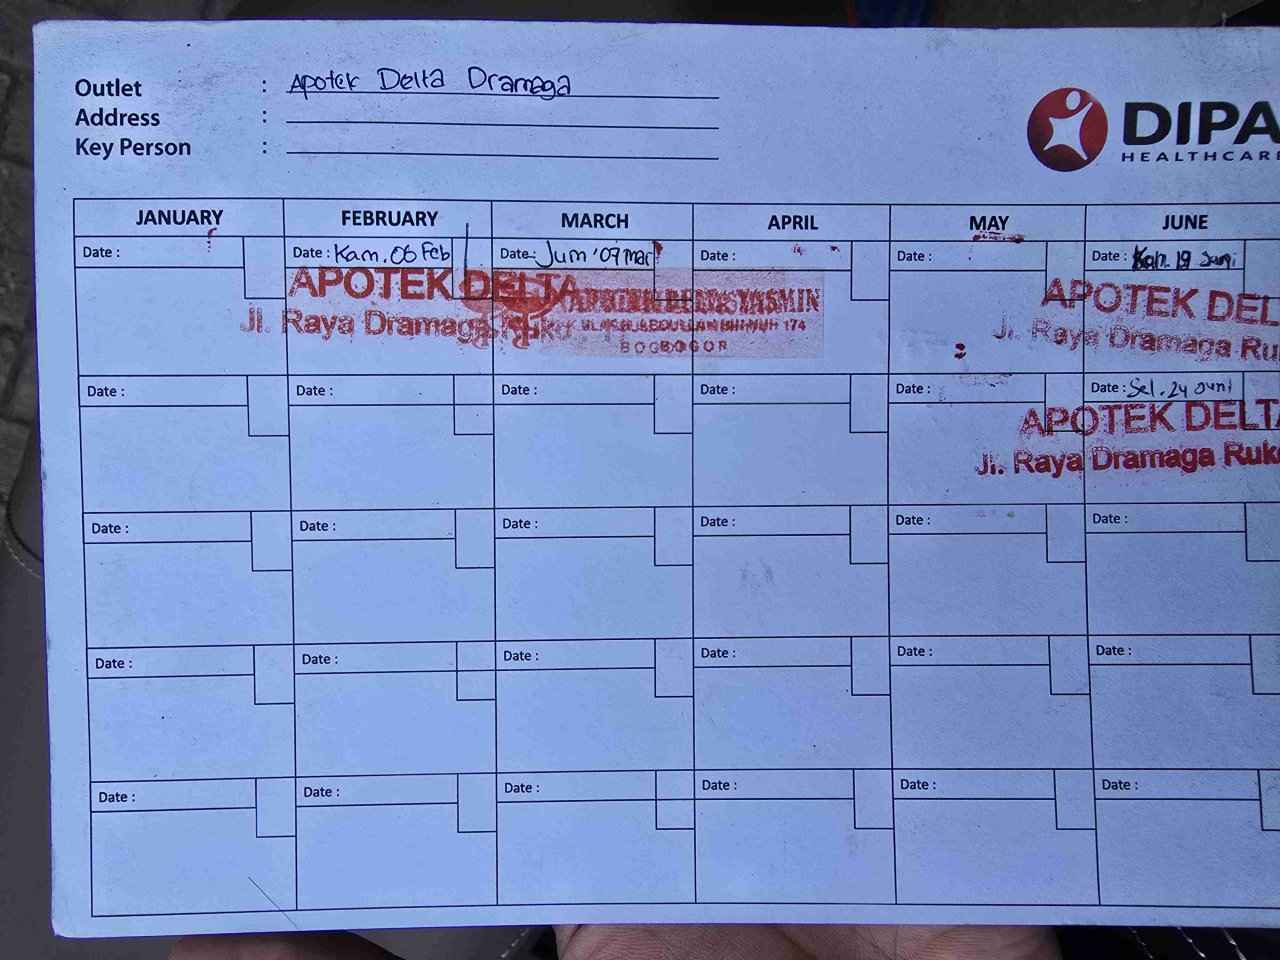 Outlet : Apotek Delta Dramaga
Address :
Key Person :
DIPA
HEALTHCARE
JANUARY FEBRUARY MARCH APRIL MAY JUNE
Date : Date : Kam. 06 Feb Date : Jum '07 Mar Date : Date : Date : Kam. 19 Juni
APOTEK DELTA
Jl. Raya Dramaga Ruko
YASMIN
ABDULLAH BIN NUH 174
BOGOR
APOTEK DEL
Jl. Raya Dramaga Ru
Date : Date : Date : Date : Date : Date : Sel. 24 Juni
APOTEK DELTA
Jl. Raya Dramaga Ruko
Date : Date : Date : Date : Date : Date :
Date : Date : Date : Date : Date : Date :
Date : Date : Date : Date : Date : Date :